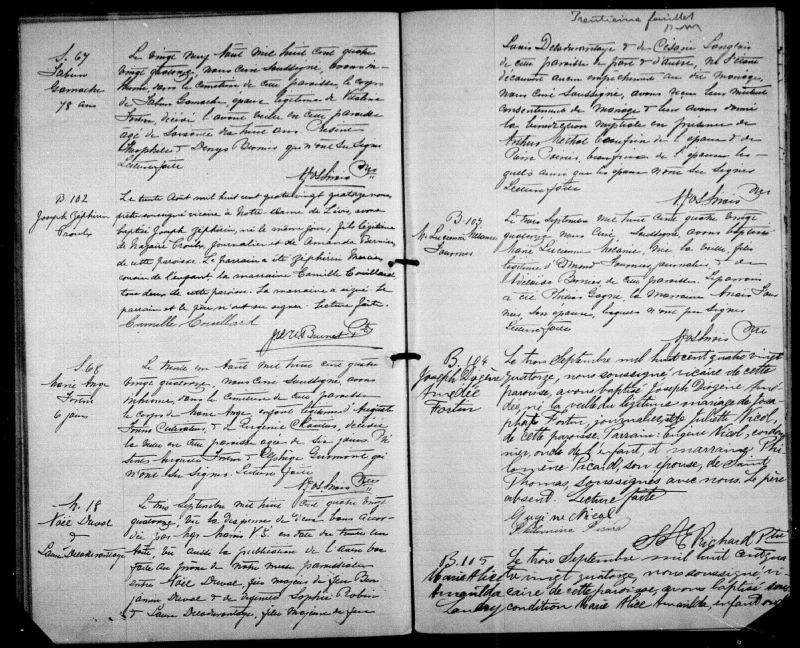 S. 67
Gamache
78 ans
Le vingt neuf Août mil huit cent quatre
vingt quatorze, nous Curé soussigné, avons in-
humé, dans le cimetière de cette paroisse, le corps
de Gamache, époux légitime de
décédé l'avant veille en cette paroisse
agé de soixante dix huit ans. Présents
Théophile & Denys Bernis qui n'ont su signer
Lecture faite
Ptre
B. 102
Joseph Zéphirin
Le trente Août mil huit cent quatre vingt quatorze nous
prêtre soussigné vicaire à Notre Dame de Lévis, avons
baptisé Joseph Zéphirin, né le même jour, fils légitime
de Nazaire journalier et de Amanda Bernier
de cette paroisse. Le parrain a été Zéphirin Mercier
cousin de l'enfant, la marraine Camille Couillard
tous deux de cette paroisse. La marraine a signé. Le
parrain et le père n'ont su signer. Lecture faite.
Camille Couillard
Ptre
S. 68
Marie Ange
6 jours
Le trente et un Août mil huit cent quatre
vingt quatorze, nous Curé soussigné, avons
inhumé, dans le cimetière de cette paroisse
le corps de Marie Ange, enfant légitime d'Auguste
Cultivateur, & d'Eugénie Cloutier, décédée
la veille en cette paroisse agée de six jours. Pré-
sents Auguste & qui
n'ont su signer. Lecture faite
Ptre
M. 18
Noël Duval
&
Laure Desladurantaye
Le trois Septembre mil huit cent quatre vingt
quatorze, vu la dispense de deux bans accor-
dée par Mgr en date du trente un
Août, vu aussi la publication de l'autre ban
faite au prône de notre messe paroissiale
entre Noël Duval, fils majeur de feu Ben-
jamin Duval & de défunte Sophie Robin
& Laure Desladurantaye, fille majeure de feu
Trentième feuillet
Louis Desladurantaye & de Césarie Langlais
de cette paroisse de part & d'autre, ne s'étant
découvert aucun empêchement au dit mariage,
nous Curé soussigné, avons reçu leur mutuel
consentement de mariage & leur avons donné
la bénédiction nuptiale en présence de
Arthur beaufrère de l'époux & de
Pierre beaufrère de l'épouse les-
quels ainsi que les époux n'ont su signer
Lecture faite
Ptre
B. 103
M. Lucienne Mélanie
Fournier
Le trois Septembre mil huit cent quatre vingt
quatorze nous Curé soussigné, avons baptisé
Marie Lucienne Mélanie, née la veille fille
légitime d'Edmond Fournier journalier & de
de cette paroisse. Le parrain
a été Gagné, la marraine
son épouse, lesquels n'ont pu signer
Lecture faite
Ptre
B. 104
Joseph Diogène
Amédée
Fortin
Le trois Septembre mil huit cent quatre vingt
quatorze, nous soussigné, vicaire de cette
paroisse, avons baptisé Joseph Diogène Amé-
dée, né la veille du légitime mariage de Josa-
phat Fortin, journalier, et de Juliette Nicol,
de cette paroisse. Parrain: Eugène Nicol, cordon-
nier, oncle de l'enfant, & marraine Phi-
lomène Picard, son épouse, de Saint
Thomas, soussignés avec nous. Le père
absent. Lecture faite
Eugène Nicol
Philomène Picard
Richard Ptre
B. 105
Marie Alice
Amanilda
Landry
Le trois Septembre mil huit cent qua-
tre vingt quatorze, nous soussigné, vi-
caire de cette paroisse, avons baptisé sous
condition Marie Alice Amanilda, enfant